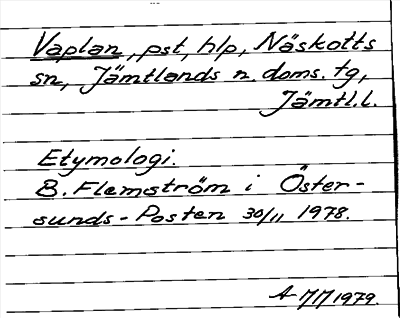 Vaplan, pst, hlp, Näskotts
sn, Jämtlands n. doms. tg,
Jämtl.l.
Etymologi.
B. Flemström i Öster-
sunds-Posten 30/11 1978.
1979.